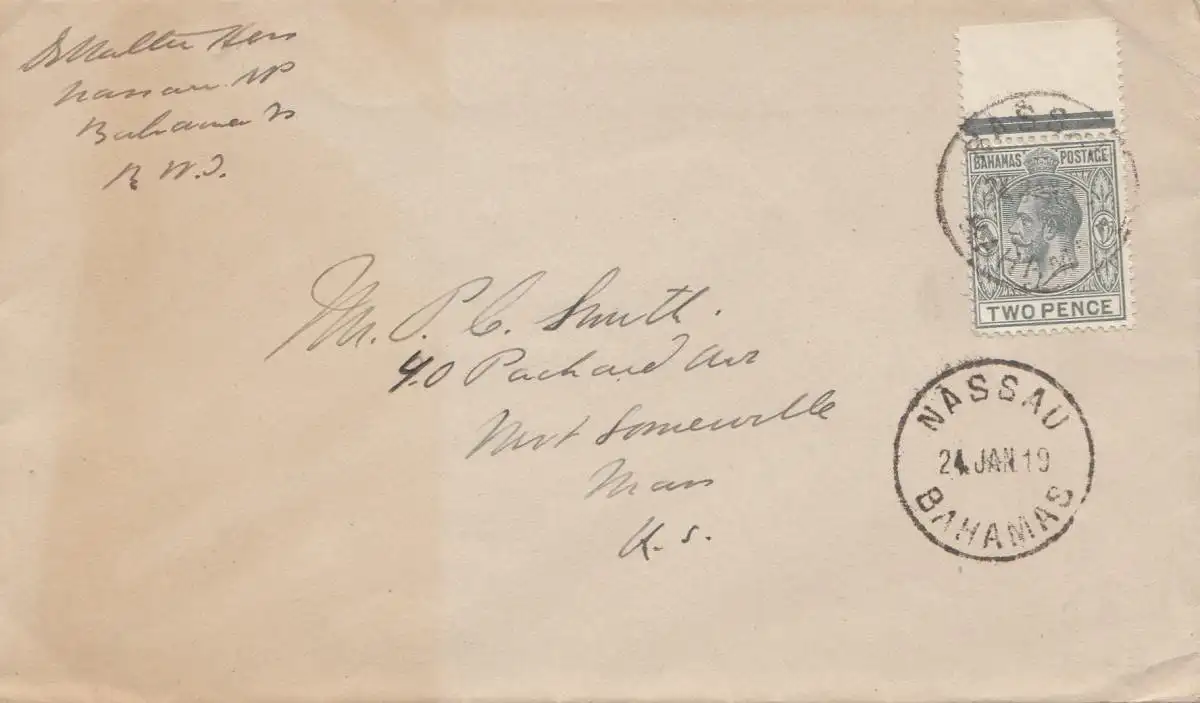 Walter Hess
Nassau NP
Bahama Is
B W.I.
BAHAMAS POSTAGE
TWO PENCE
Mr. P. C. Smith.
40 Packard Ave
West Somerville
Mass
U. S.
NASSAU
24 JAN. 19
BAHAMAS